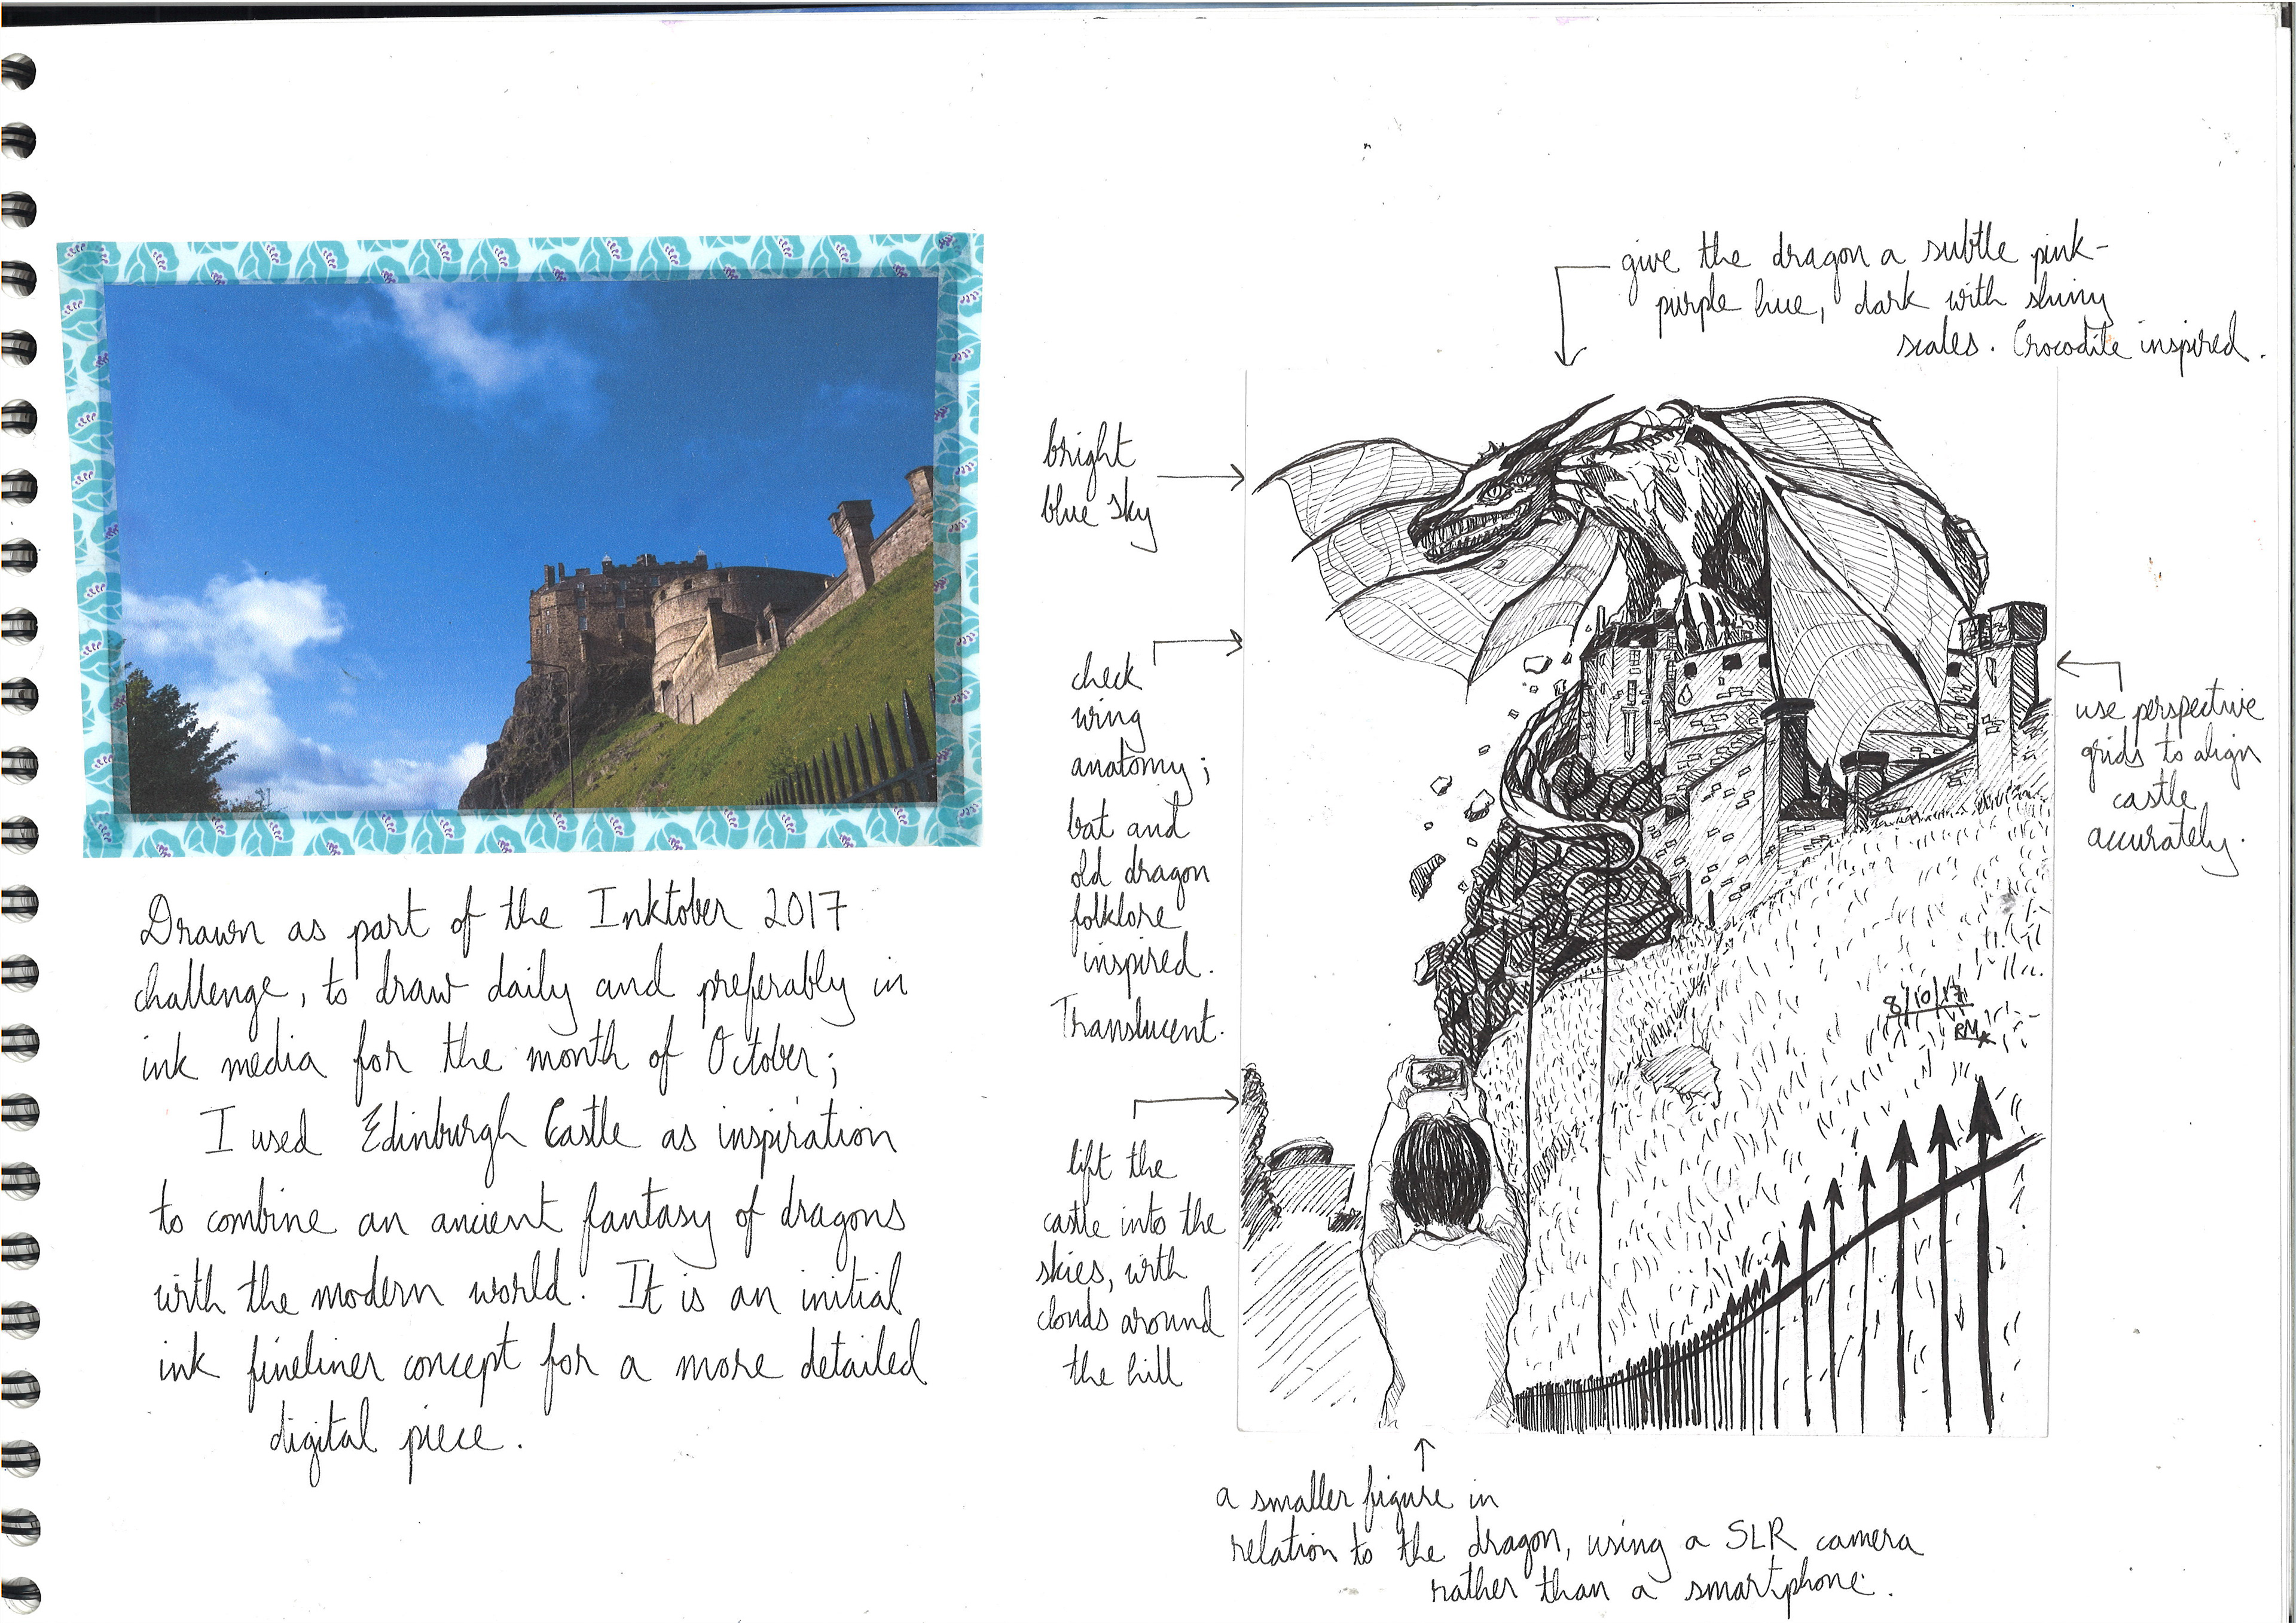 Drawn as part of the Inktober 2017
challenge, to draw daily and preferably in
ink media for the month of October;
I used Edinburgh Castle as inspiration
to combine an ancient fantasy of dragons
with the modern world. It is an initial
ink fineliner concept for a more detailed
digital piece.
give the dragon a subtle pink-
purple hue, dark with shiny
scales. Crocodile inspired.
bright
blue sky
check
wing
anatomy;
bat and
old dragon
folklore
inspired.
Translucent.
lift the
castle into the
skies, with
clouds around
the hill
use perspective
grids to align
castle
accurately.
8/10/17
RM
a smaller figure in
relation to the dragon, using a SLR camera
rather than a smartphone.